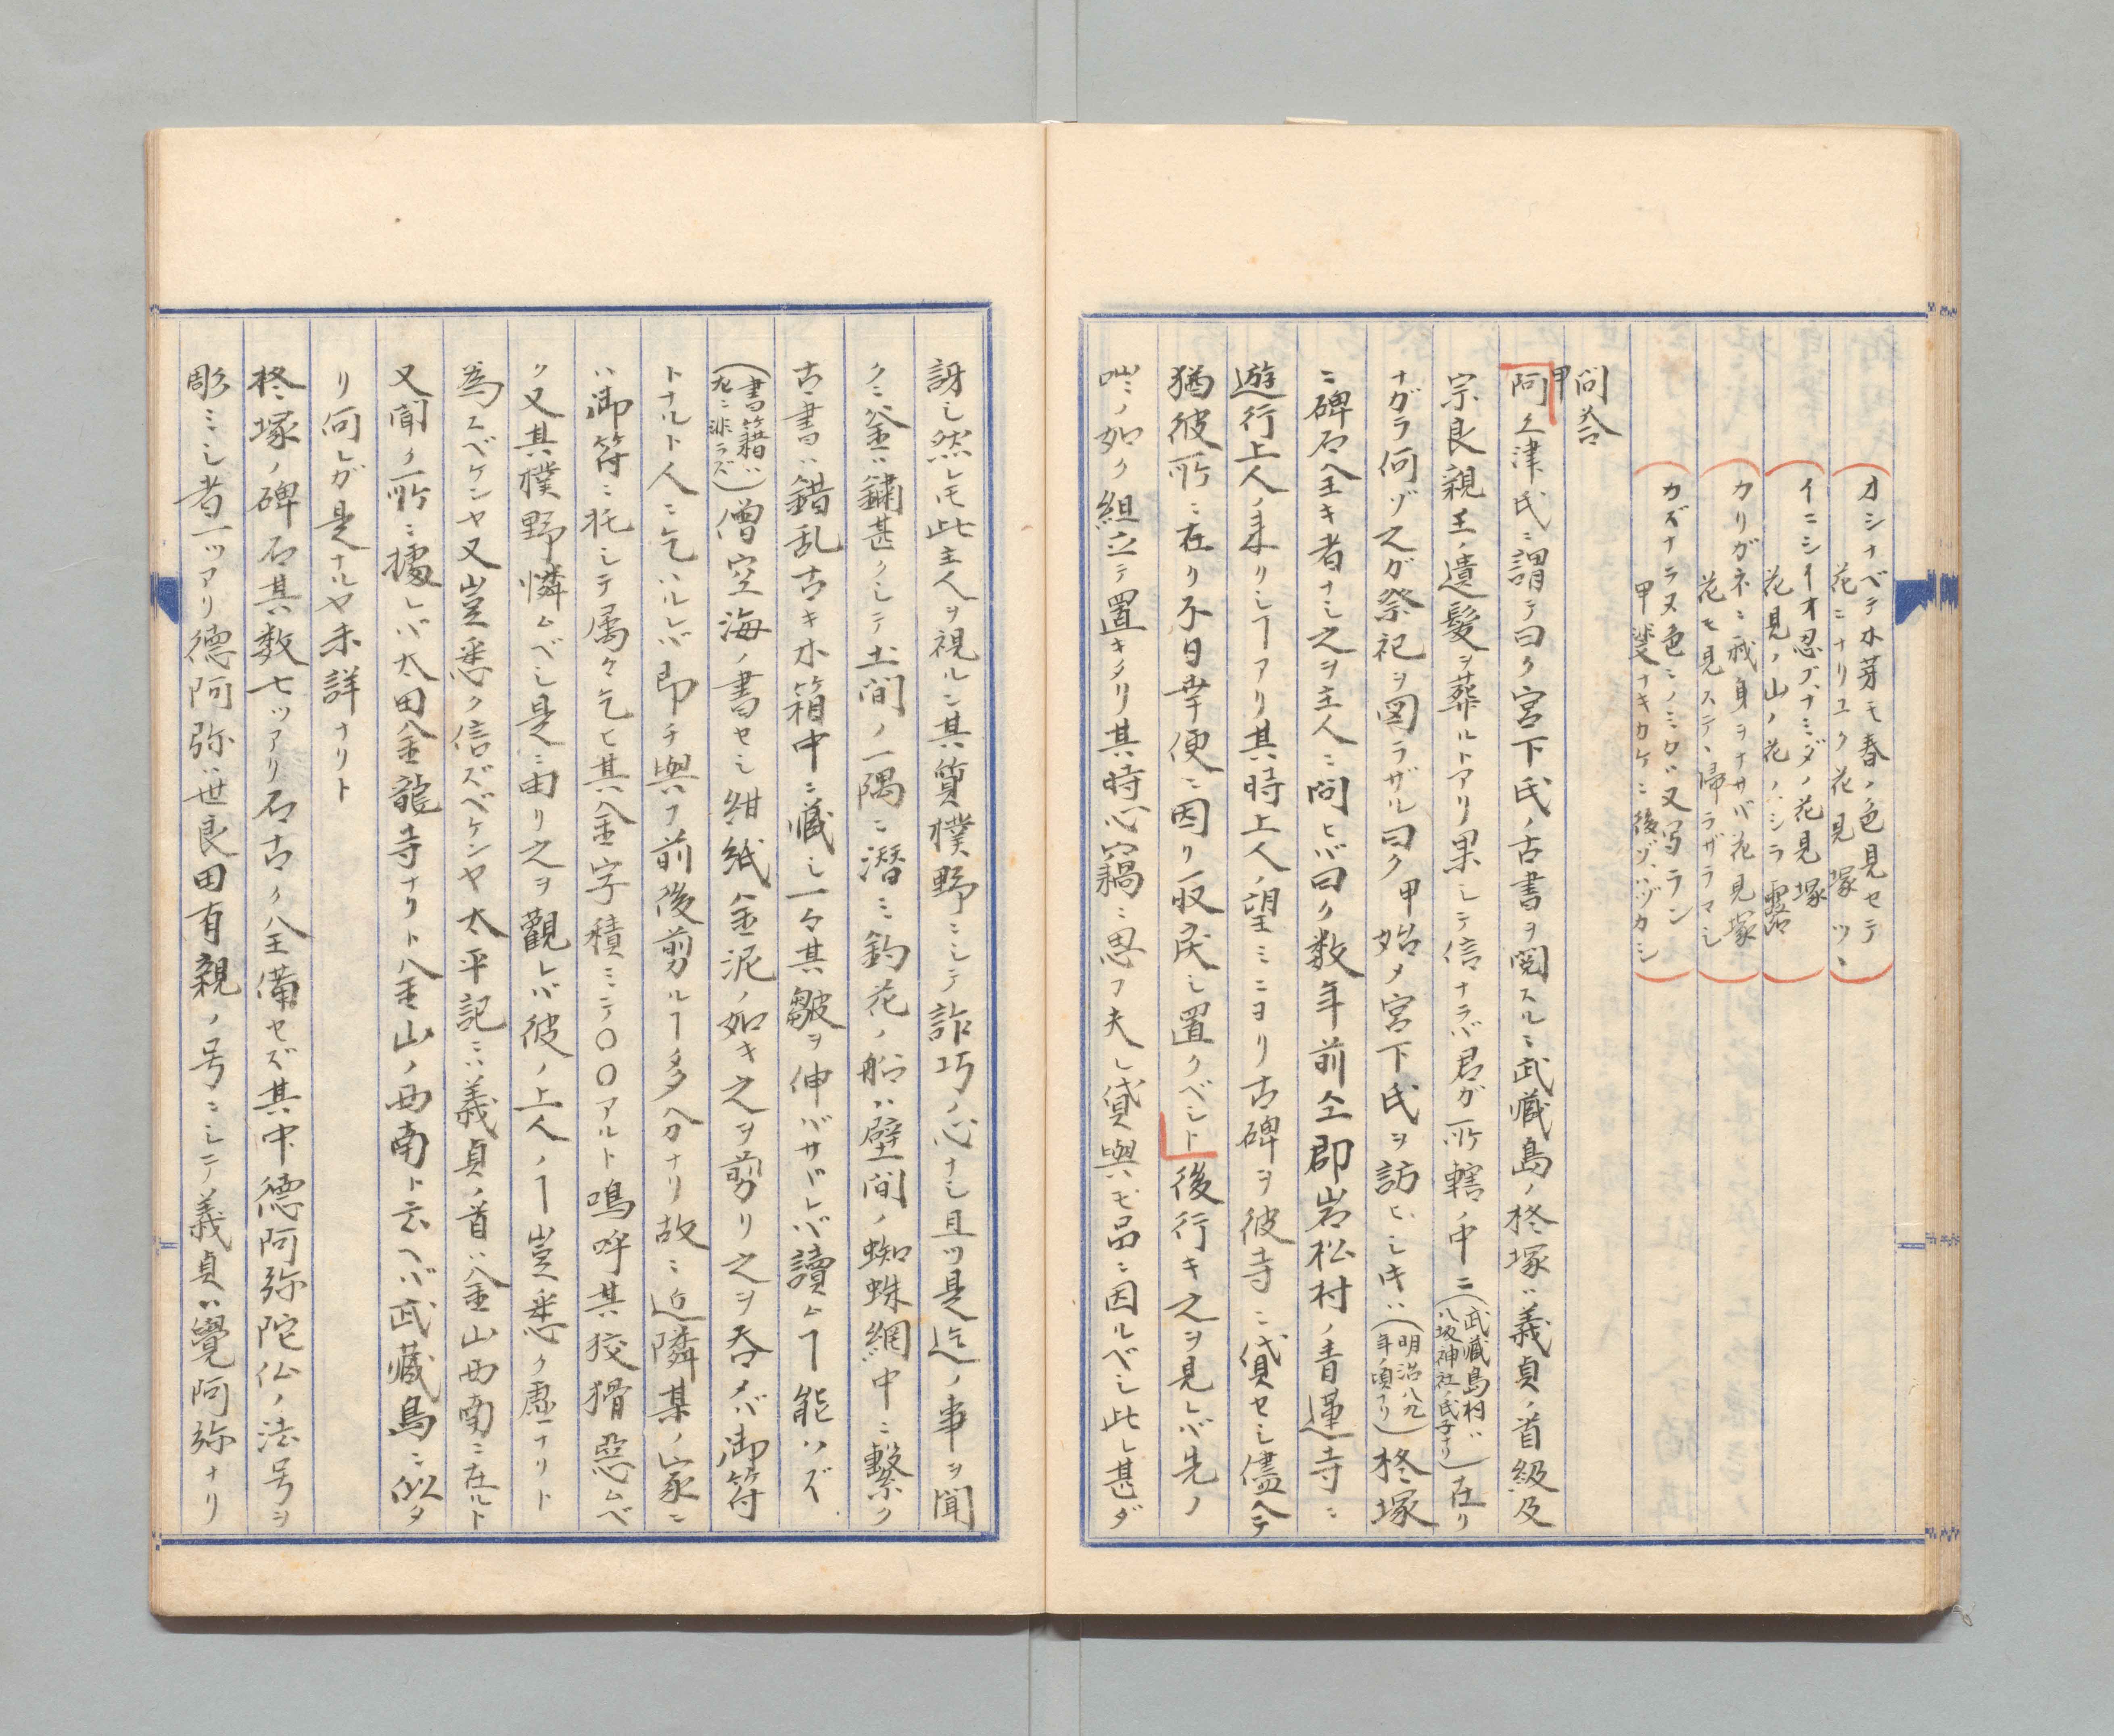 オシナベテ木芽モ春ノ色見セテ
花ニナリユク花見塚ツヽ
イニシイオ忍ブナミダノ花見塚
花見ノ山ノ花ノハシラ露
カリガネニ我身ヲナサバ花見塚
花モ見ステヽ帰ラザラマシ
カズナラヌ色ニノミクバ又寫ラン
甲斐ナキカケニ後ゾハヅカシ
問答
甲
阿久津氏ニ謂テ曰ク宮下氏ノ古書ヲ閲スルニ武蔵島ノ柊塚ハ義貞ノ首級及
宗良親王ノ遺髪ヲ葬ルトアリ果シテ信ナラバ君ガ所轄ノ中ニ(武蔵島村ハ八坂神社ノ氏子ナリ)在リ
ナガラ何ゾ之ガ祭祀ヲ図ラザル曰ク甲始メ宮下氏ヲ訪ヒシ时ハ(明治八九年ノ頃ナリ)柊塚
ニ碑石全キ者ナシ之ヲ主人ニ問ヒバ曰ク数年前仝郡岩松村ノ青蓮寺ニ
遊行上人ノ来リシヿアリ其時上人ノ望ミニヨリ古碑ヲ彼寺ニ貸セシ儘今テ
猶彼所ニ在リ不日幸便ニ因リ収戻シ置クベシト後行キ之ヲ見レバ先ノ
咄ミノ如ク組立テ置キタリ其時心竊ニ思フ夫レ貸與ハ其品ニ因ルベシ此レ甚ダ
訝シ然レ𪜈此主人ヲ視ルニ其質樸野ニシテ詐巧ノ心ナシ且ツ是迄ノ事ヲ聞
クミ釜ハ鏽甚クシテ土間ノ一隅ニ潜ミ釣花ノ船ハ壁間ノ蜘蛛網中ニ繫ク
古書ハ錯乱古キ木箱中ニ藏シ一々其皺ヲ伸バサヾレバ讀ムヿ能ハズ
(書籍ハ尤ニ非ラズ)僧空海ノ書セシ紺紙金泥ノ如キ之ヲ剪リ之ヲ呑メバ御符
トナルト人ニ乞ハルレバ即チ與フ前後剪ルヿ多分ナリ故ニ近隣某ノ家ニ
ハ御符ニ托シテ屬々乞ヒ其金字積ミテ〇〇アルト嗚呼其狡猾惡ムベ
ク又其樸野憐ムベシ是ニ由リ之ヲ觀レバ彼ノ上人ノヿ豈悉ク虚ナリト
為スベケンヤ又豈悉ク信ズベケンヤ太平記ニハ義貞ノ首ハ金山西南ニ在ルト
又聞ク所ニ據レバ太田金龍寺ナリト金山ノ西南ト云ヘバ武蔵島ニ似タ
リ何レガ是ナルヤ未詳ナリト
柊塚ノ碑石其数七ツアリ石古ク全備セズ其中德阿弥陀仏ノ法号ヲ
彫ミシ者一ツアリ德阿弥ハ世良田有親ノ号ニシテ義貞ハ覺阿弥ナリ